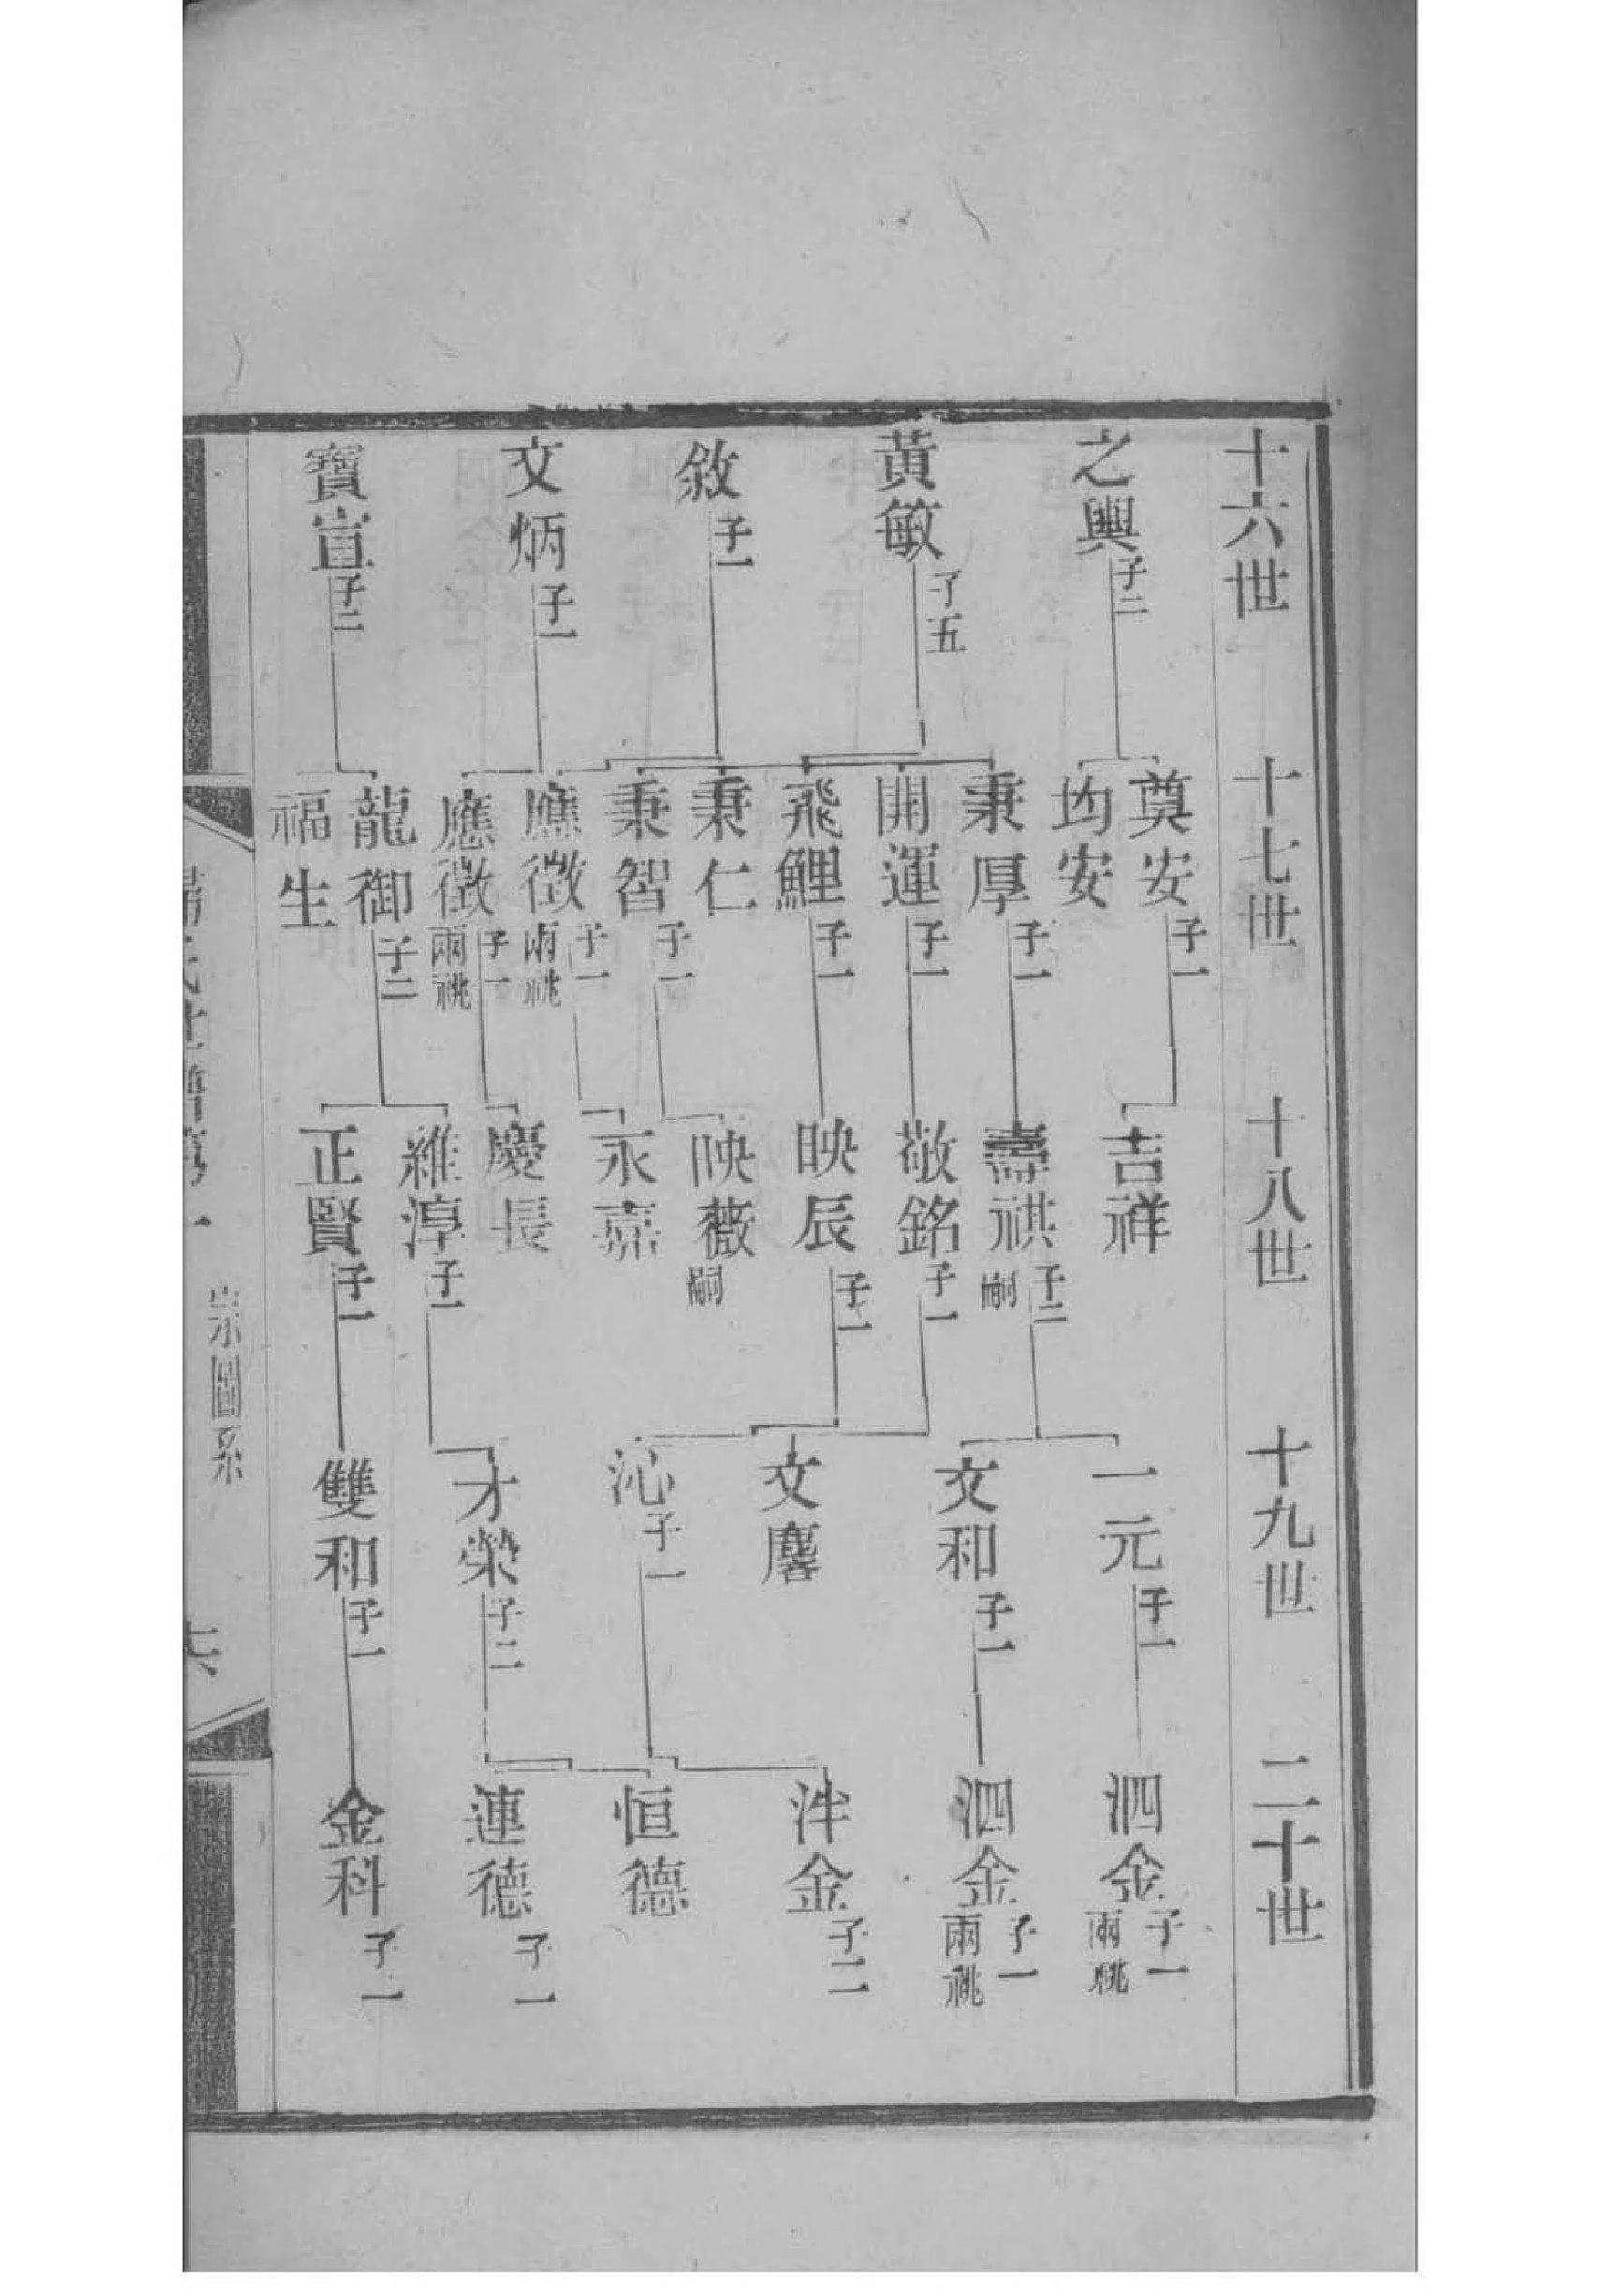 十六世
之輿 子二
黃敏 子五
敘 子一
文炳 子一
寶宣 子二
十七世
奠安 子一
均安
秉厚 子一
開運 子一
飛鯉 子一
秉仁
秉智 子一
應徵 子一 兩祧
應徵 子一 兩祧
龍御 子二
福生
十八世
吉祥
壽祺 子二 嗣
敬銘 子一
映辰 子一
映薇 嗣
永嘉
慶長
維淳 子一
正賢 子一
十九世
一元 子一
文和 子一
文麐
沁 子一
才榮 子二
雙和 子一
二十世
泗金 子一 兩祧
泗金 子一 兩祧
泮金 子二
恒德
連德 子一
金科 子一
宗圖系
六